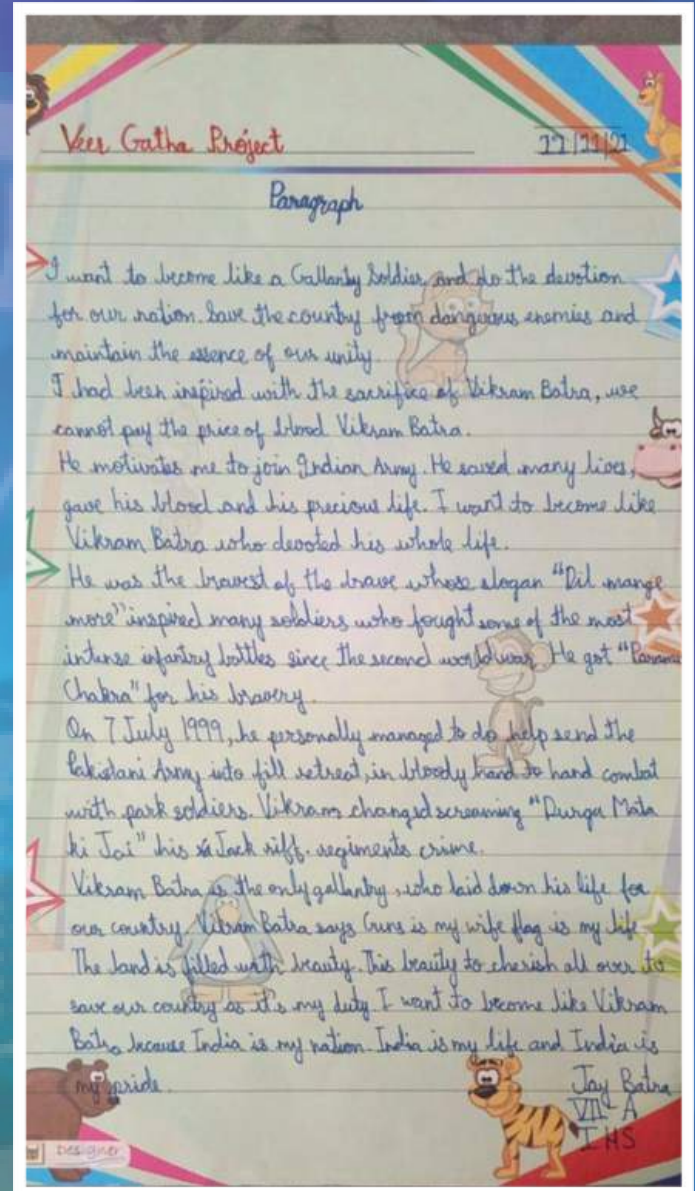 Veer Gatha Project
11/11/21
Paragraph
I want to become like a Gallanty Soldier, and do the devotion
for our nation. Save the country from dangerous enemies and
maintain the essence of our unity.
I had been inspired with the sacrifice of Vikram Batra, we
cannot pay the price of blood Vikram Batra.
He motivates me to join Indian Army. He saved many lives,
gave his blood and his precious life. I want to become like
Vikram Batra who devoted his whole life.
He was the bravest of the brave whose slogan "Dil mange
more" inspired many soldiers who fought some of the most
intense infantry battles since the second world war. He got "Param
Chakra" for his bravery.
On 7 July 1999, he personally managed to do help send the
Pakistani Army into fill retreat, in bloody hand to hand combat
with park soldiers. Vikram changed screaming "Durga Mata
ki Jai" his Jack riff. regiments crime.
Vikram Batra is the only gallantry, who laid down his life for
our country. Vikram Batra says Guns is my wife flag is my life
The land is filled with beauty. This beauty to cherish all over to
save our country as it's my duty. I want to become like Vikram
Batra because India is my nation. India is my life and India is
my pride.
Jay Batra
VII - A
IHS
Designer